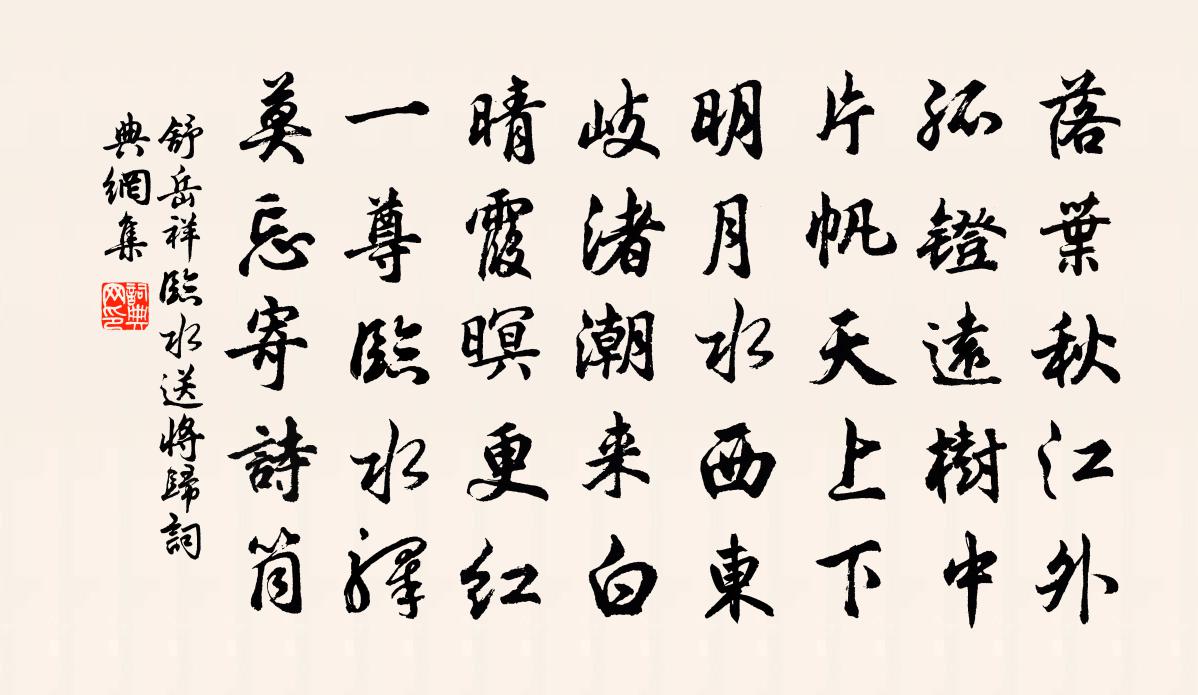 落葉秋江外
孤鐙遠樹中
片帆天上下
明月水西東
岐渚潮来白
晴霞暝更红
一尊臨水驛
莫忘寄詩筒
舒岳祥臨水送將歸詞
典網集
詞典
网印